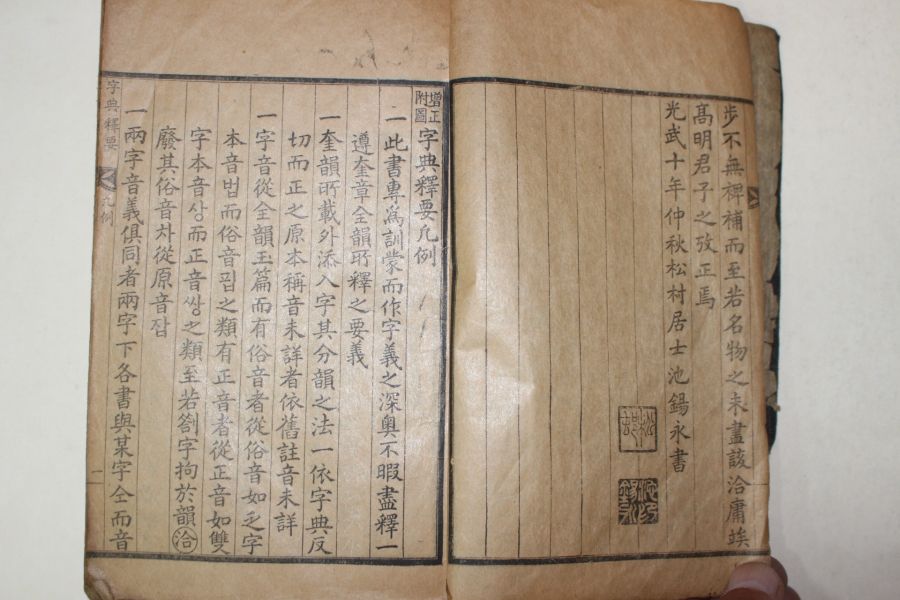 步不無裨補而至若名物之未盡該洽庸竢
髙明君子之攷正焉
光武十年仲秋松村居士池錫永書
增正附圖字典釋要凡例
一此書專爲訓蒙而作字義之深奧不暇盡釋一
遵奎章全韻所釋之要義
一奎韻所載外添入字其分韻之法一依字典反
切而正之原本稱音未詳者依舊註音未詳
一字音從全韻玉篇而有俗音者從俗音如乏字
本音법而俗音핍之類有正音者從正音如雙
字本音상而正音쌍之類至若劄字拘於韻洽
廢其俗音차從原音잡
一兩字音義俱同者兩字下各書與某字仝而音
字典釋要 凡例 一